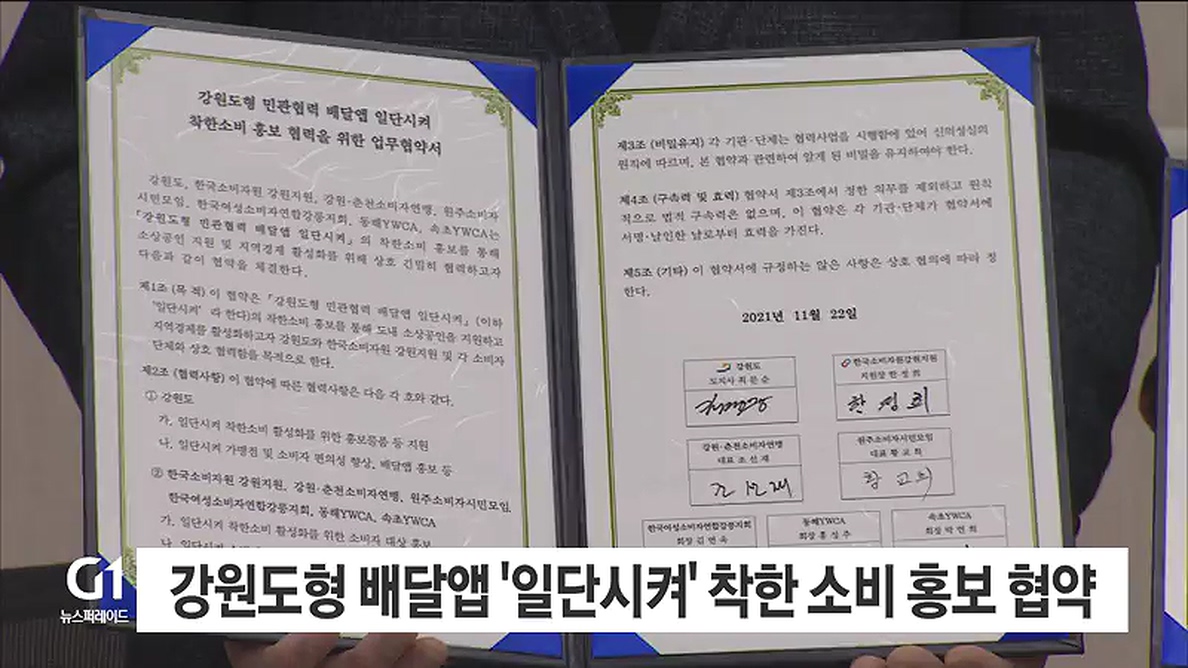 강원도형 민관협력 배달앱 일단시켜
착한소비 홍보 협력을 위한 업무협약서
강원도, 한국소비자원 강원지원, 강원·춘천소비자연맹, 원주소비자
시민모임, 한국여성소비자연합강릉지회, 동해YWCA, 속초YWCA는
「강원도형 민관협력 배달앱 일단시켜」의 착한소비 홍보를 통해
소상공인 지원 및 지역경제 활성화를 위해 상호 긴밀히 협력하고자
다음과 같이 협약을 체결한다.
제1조 (목 적) 이 협약은 「강원도형 민관협력 배달앱 일단시켜」(이하
'일단시켜' 라 한다)의 착한소비 홍보를 통해 도내 소상공인을 지원하고
지역경제를 활성화하고자 강원도와 한국소비자원 강원지원 및 각 소비자
단체와 상호 협력함을 목적으로 한다.
제2조 (협력사항) 이 협약에 따른 협력사항은 다음 각 호와 같다.
① 강원도
가. 일단시켜 착한소비 활성화를 위한 홍보물품 등 지원
나. 일단시켜 가맹점 및 소비자 편의성 향상, 배달앱 홍보 등
② 한국소비자원 강원지원, 강원·춘천소비자연맹, 원주소비자시민모임,
한국여성소비자연합강릉지회, 동해YWCA, 속초YWCA
가. 일단시켜 착한소비 활성화를 위한 소비자 대상 홍보
나. 일단시켜
제3조 (비밀유지) 각 기관·단체는 협력사업을 시행함에 있어 신의성실의
원칙에 따르며, 본 협약과 관련하여 알게 된 비밀을 유지하여야 한다.
제4조 (구속력 및 효력) 협약서 제3조에서 정한 의무를 제외하고 원칙
적으로 법적 구속력은 없으며, 이 협약은 각 기관·단체가 협약서에
서명·날인한 날로부터 효력을 가진다.
제5조 (기타) 이 협약서에 규정하는 않은 사항은 상호 협의에 따라 정
한다.
2021년 11월 22일
강원도
도지사 최문순
한국소비자원강원지원
지원장 한정희
한정희
강원·춘천소비자연맹
대표 조선재
원주소비자시민모임
대표 황교희
황교희
한국여성소비자연합강릉지회
회장 김연숙
동해YWCA
회장 홍성주
속초YWCA
회장 박연희
G1
뉴스퍼레이드
강원도형 배달앱 '일단시켜' 착한 소비 홍보 협약